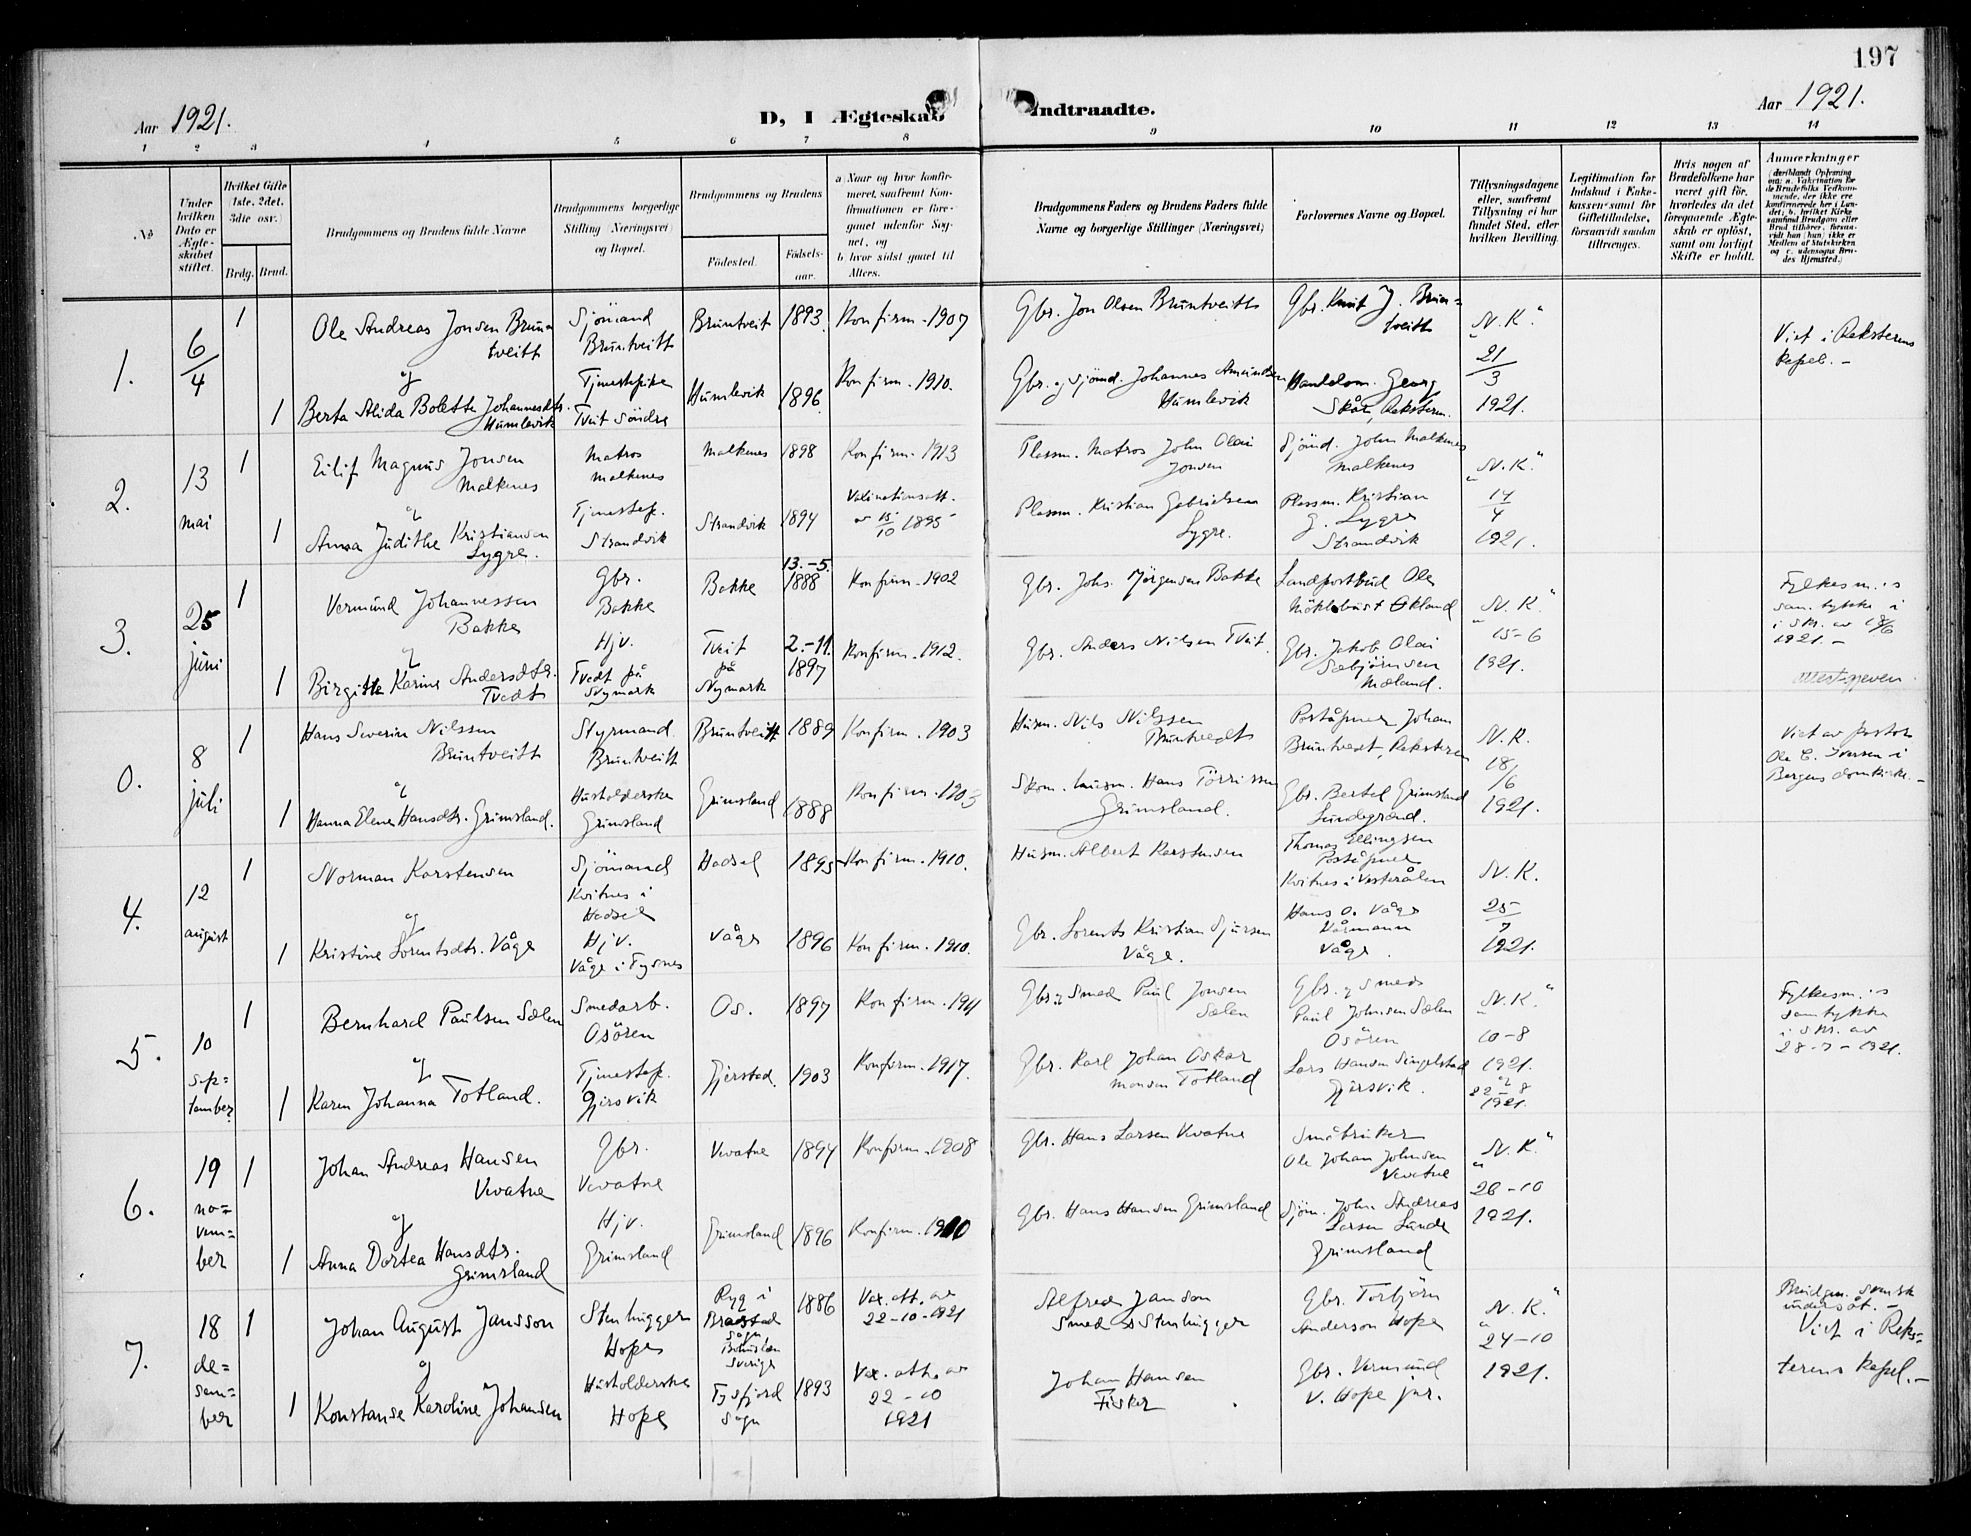 197
Aar 1921.
D, I Ægteskab Indtraadte.
Aar 1921.
1 2 3 4 5 6 7 8 9 10 11 12 13 14
No
Under hvilken Dato er Ægteskabet stiftet.
Hvilket Gifte (1ste, 2det, 3die osv.)
Brdg. Brud.
Brudgommens og Brudens fulde Navne
Brudgommens borgerlige Stilling (Næringsvei) og Bopæl.
Brudgommens og Brudens
Fødested.
Fødselsaar.
a Naar og hvor konfirmeret, saafremt Konfirmationen er foregaaet udenfor Sognet, og
b hvor sidst gaaet til Alters.
Brudgommens Faders og Brudens Faders fulde Navne og borgerlige Stillinger (Næringsvei)
Forlovernes Navne og Bopæl.
Tillysningsdagene eller, saafremt Tillysning ei har fundet Sted, efter hvilken Bevilling.
Legitimation for Indskud i Enkekassen samt for Giftetilladelse, forsaavidt saadan tiltrænges.
Hvis nogen af Brudefolkene har været gift før, hvorledes da det foregaaende Ægteskab er opløst, samt om lovligt Skifte er holdt.
Anmærkninger
1.
6/4
1
Ole Andreas Jonsen Bruntveitt
Sjömand
Bruntveitt
Bruntveit
1893.
Konfirm. 1907
Gbr. Jon Olsen Bruntveitt
Gbr. Knut J. Bruntveitt
"N. K."
21/3
1921.
Viet i Reksterens kapel. -
og
1
Berta Alida Bolette Johannesdtr. Humlevik
Tjenestepike
Tveit Söndre
Humlevik
1896.
Konfirm. 1910.
Gbr. og sjömd. Johannes Amundsen
Humlevik
Handelsm. Georg
Skår, Reksteren.
2.
13
mai
1
Eilif Magnus Jonsen
Malkenes
Matros
Malkenes
Malkenes
1898
Konfirm. 1913
Plassm. Matros John Olai
Jonsen
Sjömd. John Malkenes
Malkenes
"N. K."
14/4
1921.
og
1
Anna Judithe Kristiansen
Lygre.
Tjenestep.
Strandvik
Strandvik
1894
Vaxinationsatt.
av 15/10 1895
Plassm. Kristian Gabrielsen
Lygre.
Plassm. Kristian
G. Lygre
Strandvik
3.
25
juni
1
Vermund Johannessen
Bakke
Gbr.
Bakke
Bakke
13.-5.
1888
Konfirm. 1902
Gbr. Johs. Jørgensen Bakke
Landpostbud Ole
"N. K."
15-6
1921.
Fylkesm.s
samtykke i
skr. av 18/6
1921. -
attest given
og
1
Birgitte Karine Andersdtr.
Tvedt
Hjv.
Tvedt på
Nymark
Tveit
på
Nymark
2.-11.
1897
Konfirm. 1912.
Gbr. Anders Nilsen Tveit.
Gbr. Jakob Olai
Sæbjörnsen
Mæland.
0.
8
juli
1
Hans Severin Nilssen
Bruntveitt
Styrmand
Bruntveitt
Bruntveitt
1889
Konfirm. 1903
Husm. Nils Nilssen
Bruntvedt
Poståpner Johan
Bruntvedt, Reksteren
N. K.
18/6
1921.
Viet av pastor
Ole C. Iversen i
Bergens domkirke. -
og
1
Hanna Elene Hansdtr. Grimsland.
Husholderske
Grimsland
Grimsland
1888
Konfirm. 1903
Skom. husm. Hans Törrissen
Grimsland.
Gbr. Bertel Grimsland
Lundegrend.
4.
12
august
1
Norman Karstensen
Sjömand
Kvitnes i
Hadsel
Hadsel
1895
Konfirm. 1910.
Husm. Albert Karstensen
Thomas Ellingsen
Poståpner
Kvitnes i Vesterålen
N. K.
25/7
1921.
og
1
Kristine Lorentsdtr. Våge
Hjv.
Våge i Tysnes
Våge
1896
Konfirm. 1910.
Gbr. Lorents Kristian Sjursen
Våge.
Hans O. Våge
Våge.
5.
10
september
1
Bernhard Paulsen Sælen
Smedarb.
Osören
Os.
1897
Konfirm. 1911
Gbr. og smed Paul Jonsen
Sælen
Gbr. og smed
Paul Johnsen Sælen
Osören
"N. K."
10-8
1921.
og
22-8
1921.
Fylkesm.s
samtykke
i skr. av
28-7-1921.
og
1
Karen Johanna Totland.
Tjenestep.
Gjersvik
Gjerstad.
1903
Konfirm. 1917.
Gbr. Karl Johan Oskar
Monsen Totland
Lars Hansen Singelstad
Gjersvik.
6.
19
november
1
Johan Andreas Hansen
Vevatne
Gbr.
Vevatne
Vevatne
1894
Konfirm. 1908
Gbr. Hans Larsen Vevatne
Småbruker
Ole Johan Johnsen
Vevatne
"N. K."
26-10
1921.
og
1
Anna Dortea Hansdtr.
Grimsland
Hjv.
Grimsland
Grimsland
1896
Konfirm. 1910
Gbr. Hans Hansen Grimsland
Sjöm. John Andreas
Larsen Lunde
Grimsland
7.
18
desember
1
Johan August Jansson
Stenhugger
Hope
Ryg i
Brastad
sogn,
Bohuslen
Sverige
1886
Vax. att. av
22-10-1921
Alfred Janson
Smed & Stenhugger
Gbr. Torbjörn
Anderson Hope
"N. K."
24-10
1921.
Brudgm. svensk
undersåt. -
Viet i Reksterens kapel. -
og
1
Konstanse Karoline Johansen
Husholderske
Hope
Tysfjord
sogn
1893
Vax. att. av
22-10
1921
Johan Hansen
Fisker
Gbr. Vermund
V. Hope jnr.